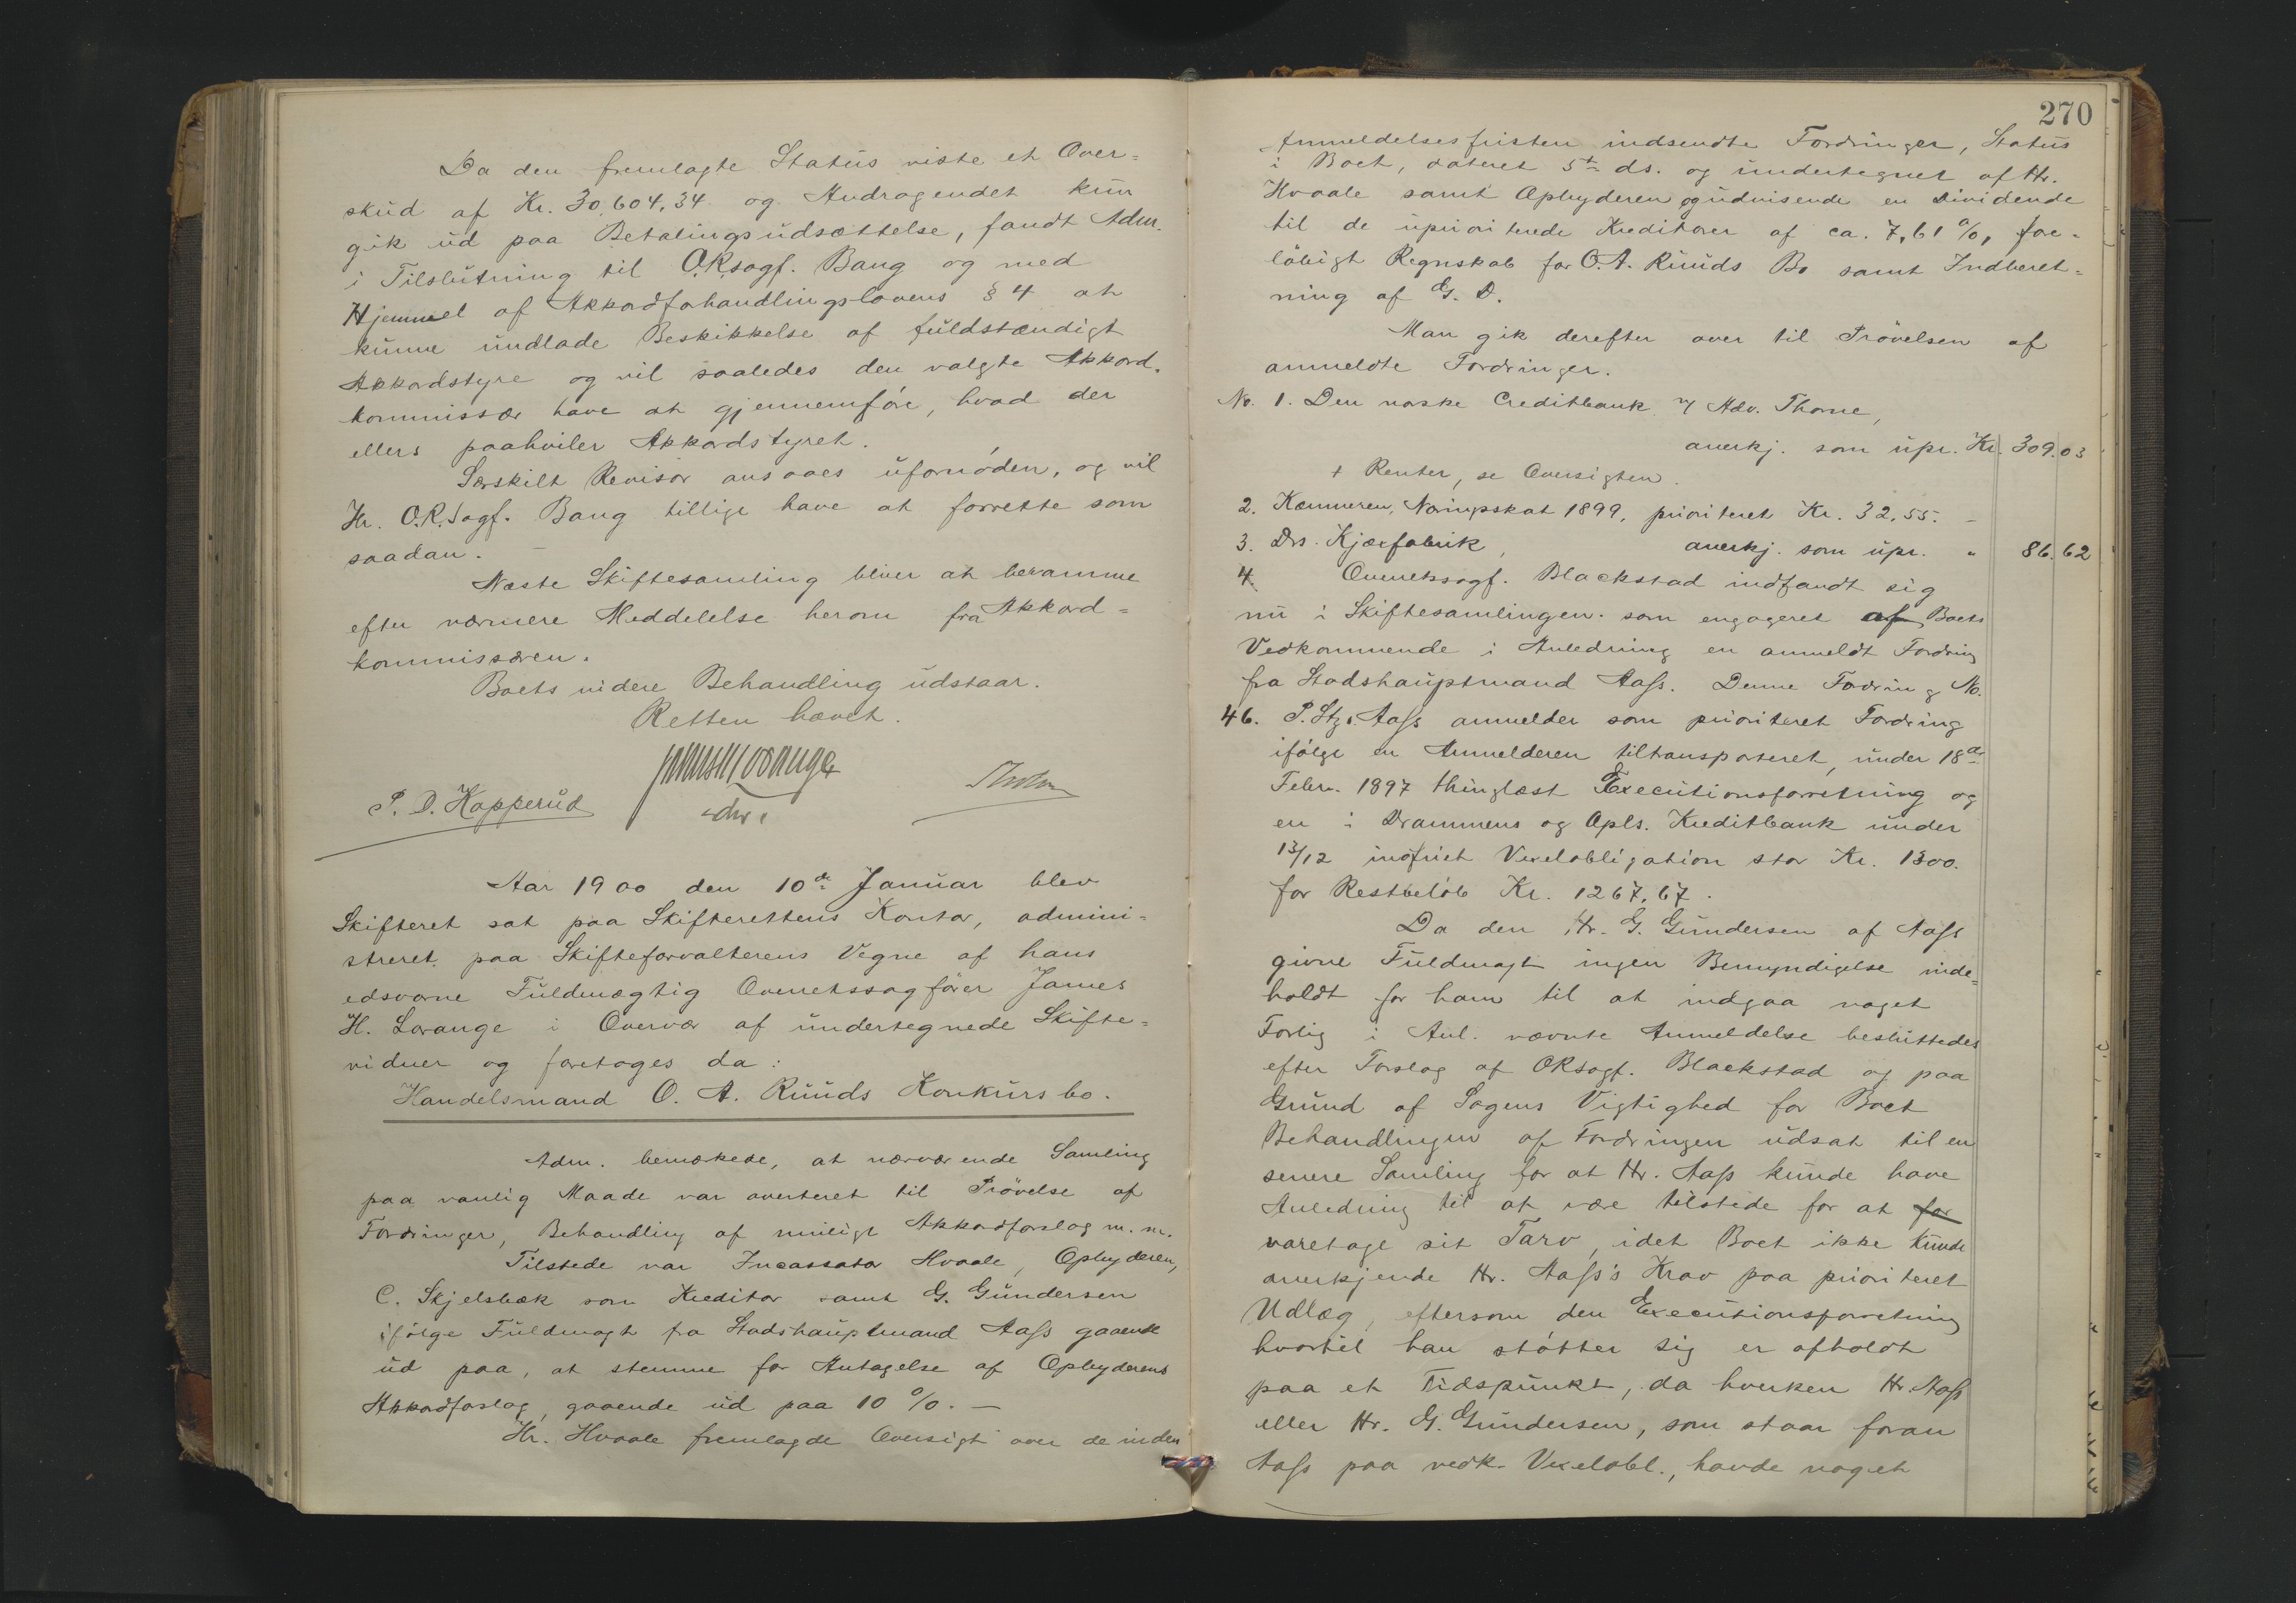 Da den fremlagte Status viste et Over=
skud af Kr. 30,604,34 og Andragendet kun
gik ud paa Betalingsudsættelse, fandt Adm.
i Tilslutning til O.R.sagf. Bang og med
Hjemmel af Akkordforhandlingslovens § 4 at
kunne undlade Beskikkelse af fuldstændigt
Akkordstyre og vil saaledes den valgte Akkord-
kommissær have at gjennemføre, hvad der
ellers paahviler Akkordstyret.
Særskilt Revisor ansaaes ufornøden, og vil
Hr. O.R.Sagf. Bang tillige have at forrette som
saadan. —
Næste Skiftesamling bliver at beramme
efter nærmere Meddelelse herom fra Akkord=
kommissæren.
Boets videre Behandling udstaar.
Retten hævet.
James H Lorange
P. D. Kopperud
edsv.
Aar 1900 den 10de Januar blev
Skifteret sat paa Skifterettens Kontor, admini=
streret paa Skifteforvalterens Vegne af hans
edsvorne Fuldmægtig Overretssagfører James
H. Lorange i Overvær af undertegnede Skifte=
vidner og foretoges da:
Handelsmand O. A. Ruuds Konkursbo.
Adm. bemærkede, at nærværende Samling
paa vanlig Maade var averteret til Prøvelse af
Fordringer, Behandling af muligt Akkordforslag m. m.
Tilstede var Incassator Hvaale, Opbyderen,
C. Skjelsbæk som Kreditor samt G. Gundersen
ifølge Fuldmagt fra Stadshauptmand Aass gaaende
ud paa, at stemme for Antagelse af Opbyderens
Akkordforslag, gaaende ud paa 10 %. —
Hr. Hvaale fremlagde Oversigt over de inden
270
Anmeldelsesfristen indsendte Fordringer, Status
i Boet, dateret 5te ds. og undertegnet af Hr.
Hvaale samt Opbyderen og udvisende en Dividende
til de upriorterede Kreditorer af ca. 7,61 %, fore-
løbigt Regnskab for O. A. Ruuds Bo samt Indberet=
ning af G. D.
Man gik derefter over til Prøvelsen af
anmeldte Fordringer.
No. 1. Den norske Creditbank v/ Adv. Thorne,
anerkj. som upr. Kr. 309.03
+ Renter, se Oversigten.
2. Kæmneren, Næringsskat 1899, prioriteret Kr. 32,55. —
3. Drs. Kjæxfabrik, anerkj. som upr. " 86.62
4. Overretssagf. Blackstad indfandt sig
nu i Skiftesamlingen som engageret af Boets
Vedkommende i Anledning en anmeldt Fordring
fra Stadshauptmand Aass. Denne Fordring No.
46. P. Ltz. Aass anmelder som prioriteret Fordring
ifølge en Anmelderen tiltransporteret, under 18de
Febr. 1897 thinglæst Executionsforretning og
en i Drammens og Opls. Kreditbank under
13/12 indfriet Vexelobligation stor Kr. 1300.
for Restbeløb Kr. 1267,67.
Da den Hr. G. Gundersen af Aass
givne Fuldmagt ingen Bemyndigelse inde=
holdt for ham til at indgaa noget
Forlig i Anl. nævnte Anmeldelse besluttedes
efter Forslag af ORsagf. Blackstad og paa
Grund af Sagens Vigtighed for Boet
Behandlingen af Fordringen udsat til en
senere Samling for at Hr. Aass kunde have
Anledning til at være tilstede for at for
varetage sit Tarv, idet Boet ikke kunde
anerkjende Hr. Aass's Krav paa prioriteret
Udlæg, eftersom den Executionsforretning
hvortil han støtter sig er afholdt
paa et Tidspunkt, da hverken Hr. Aass
eller Hr. G. Gundersen, som staar foran
Aass paa vedk. Vexelobl., havde noget